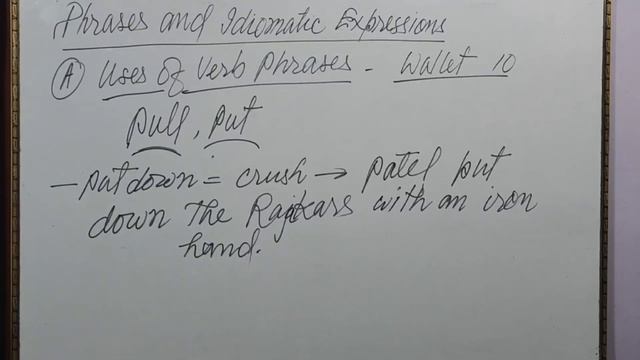 Phrases and Idiomatic Expressions
(A) Uses of Verb Phrases - Wallet 10
pull, put
- put down = crush → patel put
down The Razakars with an iron
hand.